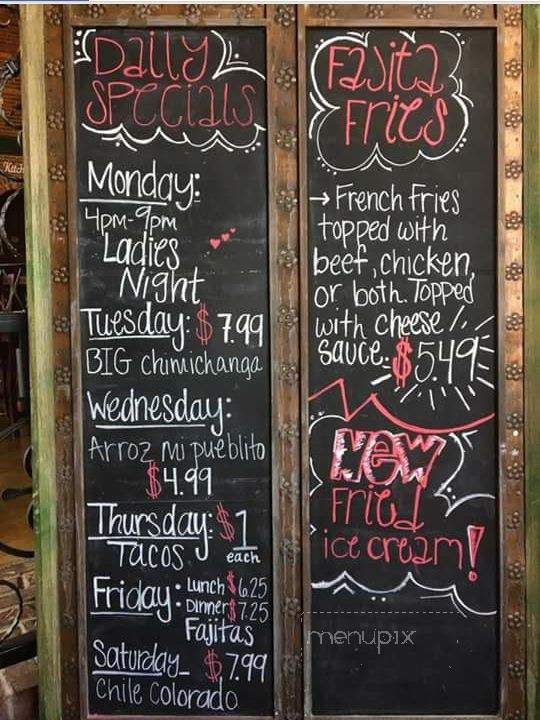 Daily
Specials
Monday:
4pm-9pm
Ladies
Night
Tuesday: $7.99
BIG chimichanga
Wednesday:
Arroz mi pueblito
$4.99
Thursday: $1
Tacos each
Friday: Lunch $6.25
Dinner $7.25
Fajitas
Saturday_ $7.99
Chile Colorado
Fajita
Fries
→ French Fries
topped with
beef, chicken,
or both. Topped
with cheese
sauce. $5.49
New
Fried
ice cream!
menupix